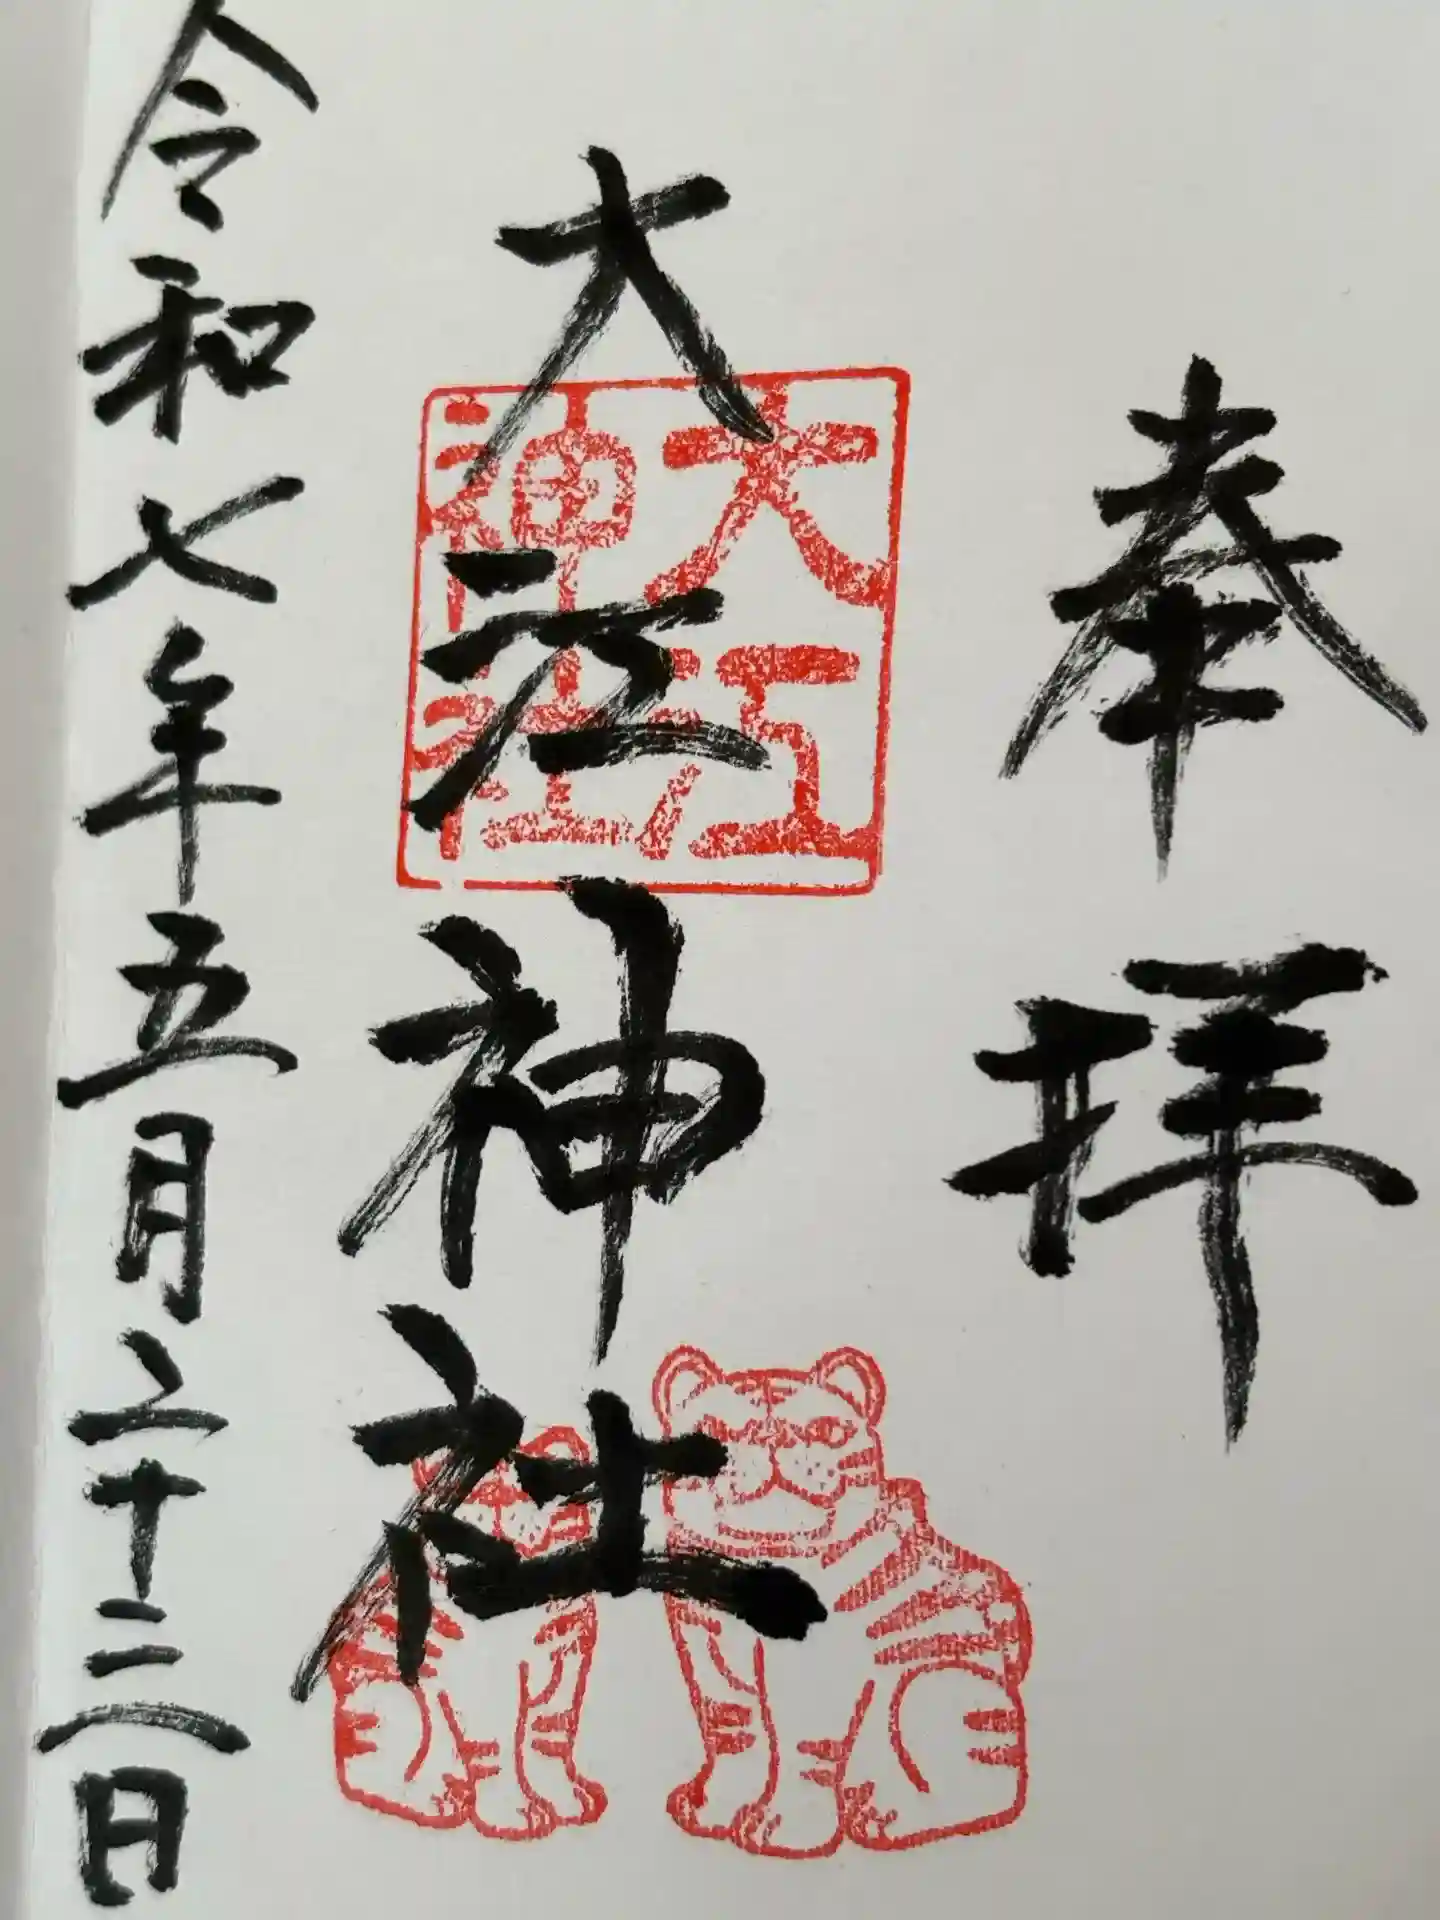 奉拝
大江神社
大江神社
令和七年五月二十三日